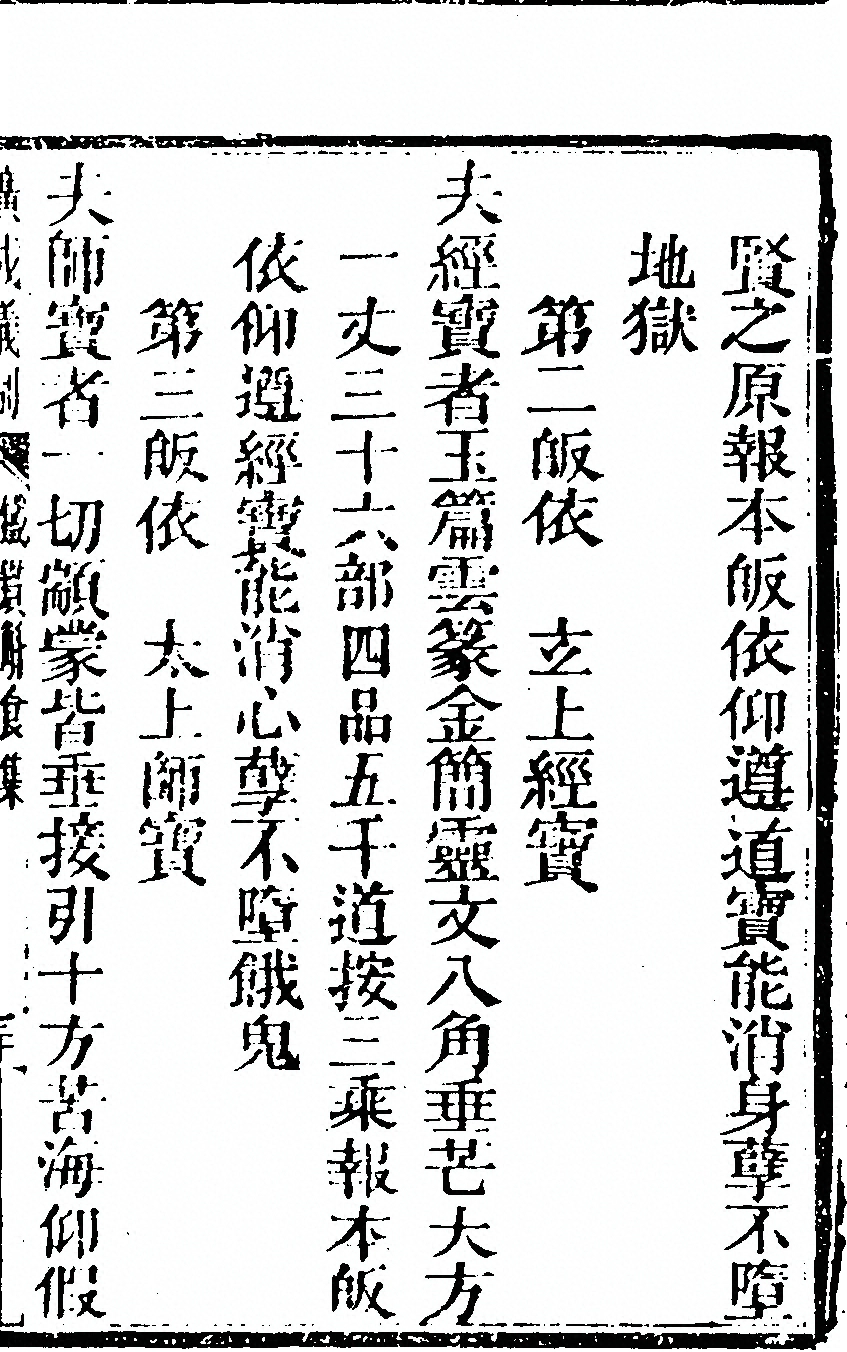 賢之原報本皈依仰遵道寶能消身孽不墮
地獄
第二皈依　玄上經寶
夫經寶者玉篇雲篆金簡靈文八角垂芒大方
一丈三十六部四品五千道按三乘報本皈
依仰遵經寶能消心孽不墮餓鬼
第三皈依　太上師寶
夫師寶者一切顓蒙皆垂接引十方苦海仰假